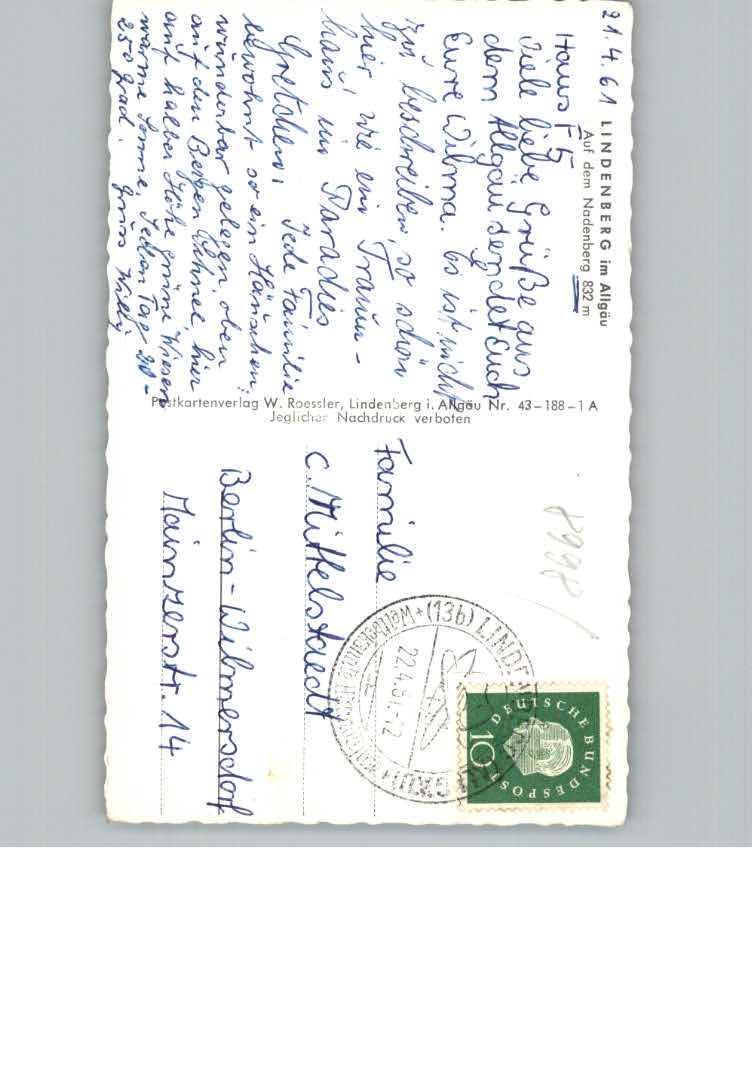 21.4.61 LINDENBERG im Allgäu
Auf dem Nadenberg 832 m
Haus F 5
Viele liebe Grüße aus
dem Allgäu sendet Euch
Eure Wilma. Es ist nicht
zu beschreiben, so schön
hier, wie ein Traum-
haus im Paradies
Gretchen! Jede Familie
bewohnt so ein Häuschen,
wunderbar gelegen oben
auf den Bergen Schnee, hier
auf halber Höhe grüne Wiesen
warme Sonne, Jeden Tag 20-
250 grad. Gruss Willy
Postkartenverlag W. Roessler, Lindenberg i. Allgäu Nr. 43-188-1 A
Jeglicher Nachdruck verboten
8998/
Familie
C. Mittelstaedt
Berlin-Wilmersdorf
Mainzerstr. 14
(13b) LINDENBERG (ALLGÄU)
22.4.61-12
DEUTSCHE BUNDESPOST
10